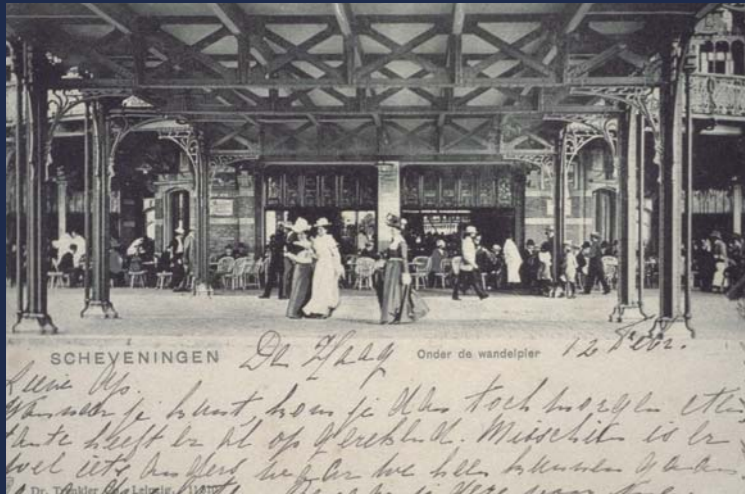 SCHEVENINGEN Den Haag Onder de wandelpier 12 Febr.
Lieve
Wanneer je kunt, kom je dan toch morgen eten
tante heeft er al op gerekend. Misschien is er
wel iets anders waar we heen kunnen gaan
Dr. Trenkler Co., Leipzig.